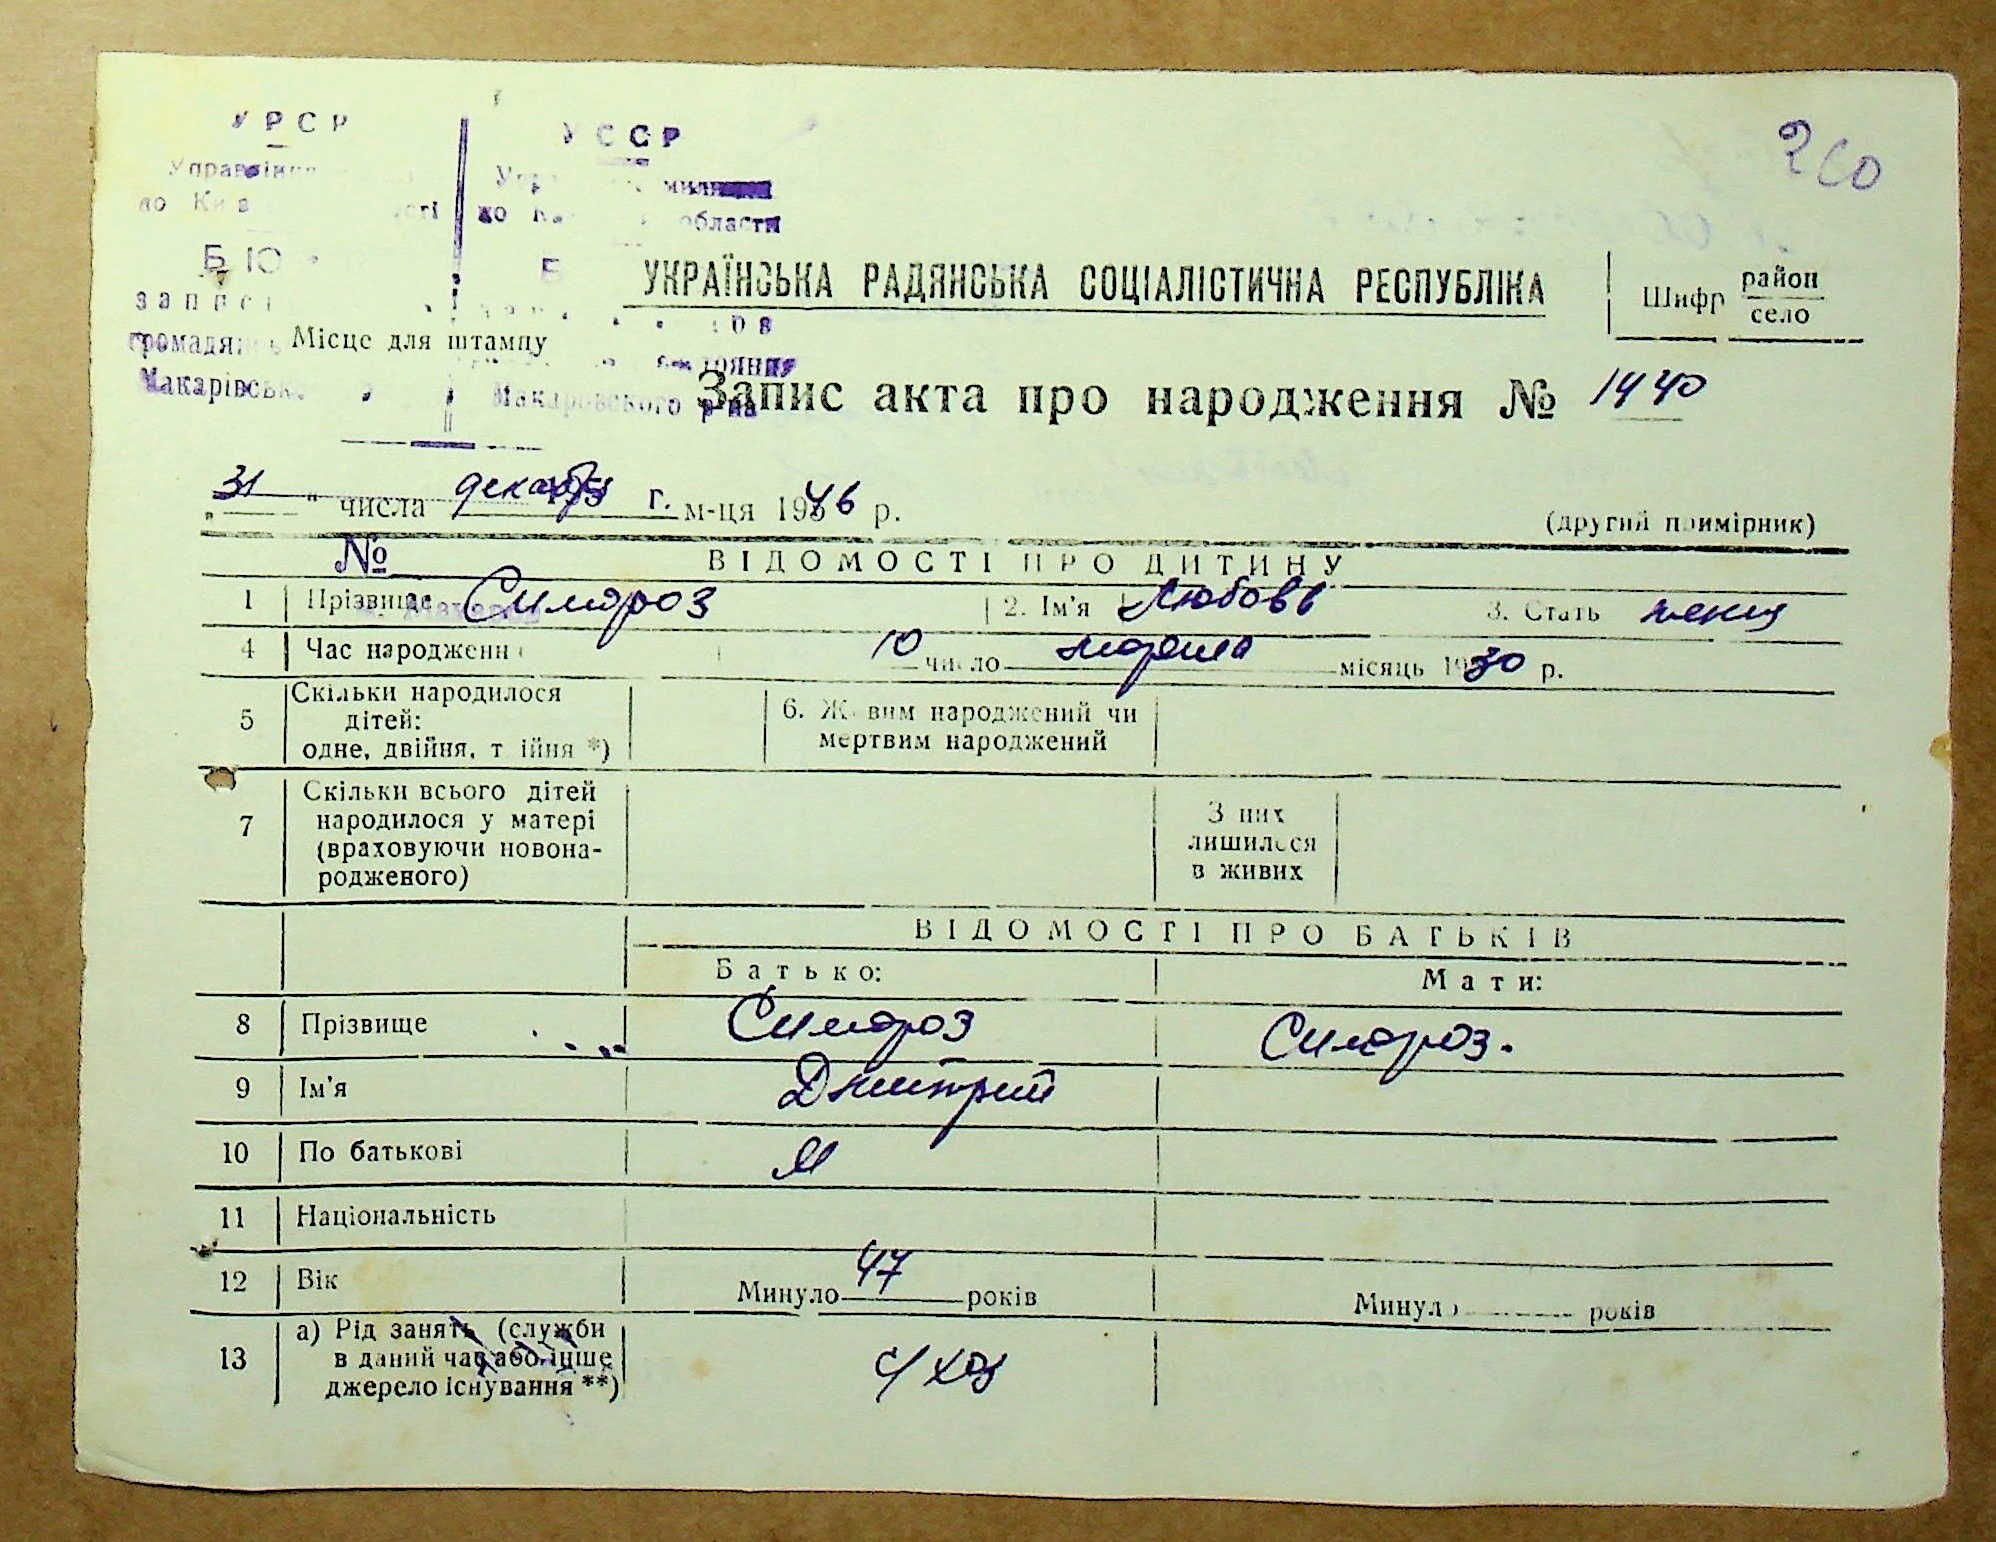 УРСР
УССР
260
по
по
області
области
БЮ
УКРАЇНСЬКА РАДЯНСЬКА СОЦІАЛІСТИЧНА РЕСПУБЛІКА
Шифр район
село
Місце для штампу
Макаровского р-на
Запис акта про народження № 1440
„ 31 “ числа декабря г. м-ця 1946 р.
(другий примірник)
№ ВІДОМОСТІ ПРО ДИТИНУ
1 Прізвище Симороз 2. Ім'я Любовь 3. Стать женщ
4 Час народження 10 число марта місяць 1930 р.
5 Скільки народилося
дітей:
одне, двійня, трійня *)
6. Живим народжений чи
мертвим народжений
7 Скільки всього дітей
народилося у матері
(враховуючи новона-
родженого)
З них
лишилося
в живих
ВІДОМОСТІ ПРО БАТЬКІВ
Батько: Мати:
8 Прізвище Симороз Симороз.
9 Ім'я Дмитрий
10 По батькові М
11 Національність
12 Вік Минуло 47 років Минуло років
13 а) Рід занять (служби
в даний час або інше
джерело існування **)
с/хоз